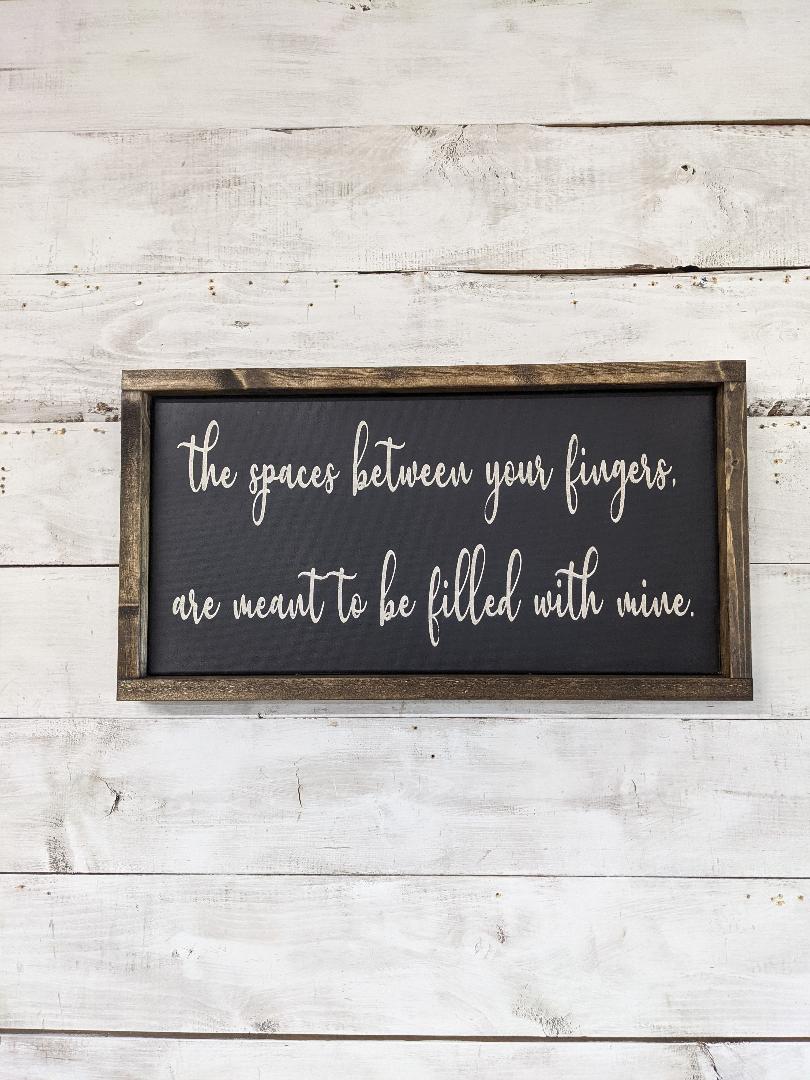 the spaces between your fingers,
are meant to be filled with mine.